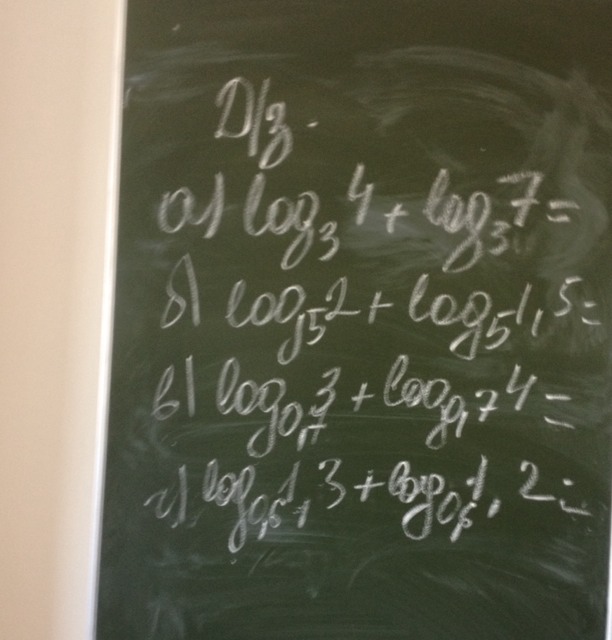 Д/з.
а) log₃ 4 + log₃ 7 =
б) log₅ 2 + log₅ 1,5 =
в) log₀,₇ 3 + log₀,₇ 4 =
г) log₀,₆ 1,3 + log₀,₆ 1,2 =